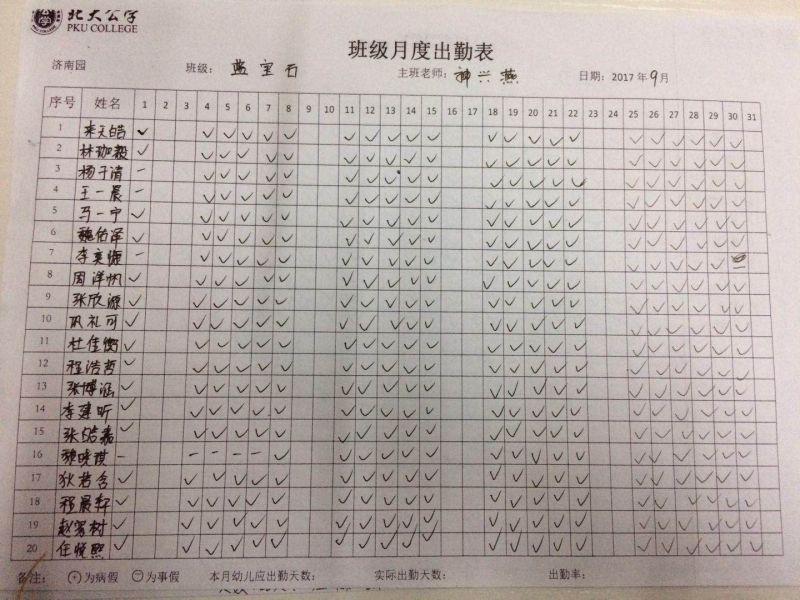 北大公学
PKU COLLEGE
班级月度出勤表
济南园 班级: 蓝宝石 主班老师: 神兴燕 日期: 2017 年 9 月
序号 姓名 1 2 3 4 5 6 7 8 9 10 11 12 13 14 15 16 17 18 19 20 21 22 23 24 25 26 27 28 29 30 31
1 天皓 ✓ ✓ ✓ ✓ ✓ ✓ ✓ ✓ ✓ ✓ ✓ ✓ ✓ ✓ ✓ ✓ ✓ ✓ ✓ ✓ ✓ ✓
2 林珈毅 ✓ ✓ ✓ ✓ ✓ ✓ ✓ ✓ ✓ ✓ ✓ ✓ ✓ ✓ ✓ ✓ ✓ ✓ ✓ ✓ ✓ ✓
3 杨子清 － ✓ ✓ ✓ ✓ ✓ ✓ ✓ ✓ ✓ ✓ ✓ ✓ ✓ ✓ ✓ ✓ ✓ ✓ ✓ ✓ ✓
4 王一晨 － ✓ ✓ ✓ ✓ ✓ ✓ ✓ ✓ ✓ ✓ ✓ ✓ ✓ ✓ ✓ ✓ ✓ ✓ ✓ ✓ ✓
5 马一宁 ✓ ✓ ✓ ✓ ✓ ✓ ✓ ✓ ✓ ✓ ✓ ✓ ✓ ✓ ✓ ✓ ✓ ✓ ✓ ✓ ✓ ✓
6 魏佑泽 ✓ ✓ ✓ ✓ ✓ ✓ ✓ ✓ ✓ ✓ ✓ ✓ ✓ ✓ ✓ ✓ ✓ ✓ ✓ ✓ ✓ ✓
7 李奕 － ✓ ✓ ✓ ✓ ✓ ✓ ✓ ✓ ✓ ✓ ✓ ✓ ✓ ✓ ✓ ✓ ✓ ✓ ✓ ✓ －
8 周洋帆 ✓ ✓ ✓ ✓ ✓ ✓ ✓ ✓ ✓ ✓ ✓ ✓ ✓ ✓ ✓ ✓ ✓ ✓ ✓ ✓ ✓ ✓
9 张欣源 ✓ ✓ ✓ ✓ ✓ ✓ ✓ ✓ ✓ ✓ ✓ ✓ ✓ ✓ ✓ ✓ ✓ ✓ ✓ ✓ ✓ ✓
10 巩礼可 ✓ ✓ ✓ ✓ ✓ ✓ ✓ ✓ ✓ ✓ ✓ ✓ ✓ ✓ ✓ ✓ ✓ ✓ ✓ ✓ ✓ ✓
11 杜佳衡 ✓ ✓ ✓ ✓ ✓ ✓ ✓ ✓ ✓ ✓ ✓ ✓ ✓ ✓ ✓ ✓ ✓ ✓ ✓ ✓ ✓ ✓
12 程浩哲 ✓ ✓ ✓ ✓ ✓ ✓ ✓ ✓ ✓ ✓ ✓ ✓ ✓ ✓ ✓ ✓ ✓ ✓ ✓ ✓ ✓ ✓
13 张博涵 ✓ ✓ ✓ ✓ ✓ ✓ ✓ ✓ ✓ ✓ ✓ ✓ ✓ ✓ ✓ ✓ ✓ ✓ ✓ ✓ ✓ ✓
14 李建昕 ✓ ✓ ✓ ✓ ✓ ✓ ✓ ✓ ✓ ✓ ✓ ✓ ✓ ✓ ✓ ✓ ✓ ✓ ✓ ✓ ✓ ✓
15 张皓嘉 ✓ ✓ ✓ ✓ ✓ ✓ ✓ ✓ ✓ ✓ ✓ ✓ ✓ ✓ ✓ ✓ ✓ ✓ ✓ ✓ ✓ ✓
16 魏晓琪 － － － － － ✓ ✓ ✓ ✓ ✓ ✓ ✓ ✓ ✓ ✓ ✓ ✓ ✓ ✓ ✓ ✓ ✓
17 狄若含 ✓ ✓ ✓ ✓ ✓ ✓ ✓ ✓ ✓ ✓ ✓ ✓ ✓ ✓ ✓ ✓ ✓ ✓ ✓ ✓ ✓ ✓
18 程晨 ✓ ✓ ✓ ✓ ✓ ✓ ✓ ✓ ✓ ✓ ✓ ✓ ✓ ✓ ✓ ✓ ✓ ✓ ✓ ✓ ✓ ✓
19 赵 树 ✓ ✓ ✓ ✓ ✓ ✓ ✓ ✓ ✓ ✓ ✓ ✓ ✓ ✓ ✓ ✓ ✓ ✓ ✓ ✓ ✓ ✓
20 任悦熙 ✓ ✓ ✓ ✓ ✓ ✓ ✓ ✓ ✓ ✓ ✓ ✓ ✓ ✓ ✓ ✓ ✓ ✓ ✓ ✓ ✓ ✓
备注: ⊕为病假 ⊖为事假 本月幼儿应出勤天数: 实际出勤天数: 出勤率: